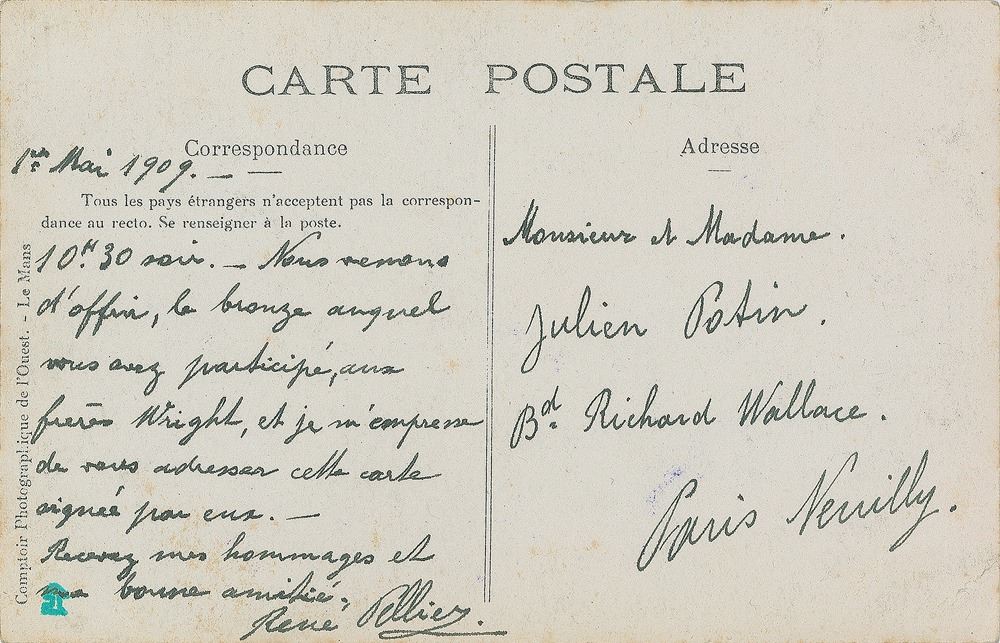 CARTE POSTALE
Correspondance
1er Mai 1909. —
Tous les pays étrangers n'acceptent pas la correspon-
dance au recto. Se renseigner à la poste.
10H.30 soir. — Nous venons
d'offrir, le bronze auquel
vous avez participé, aux
frères Wright, et je m'empresse
de vous adresser cette carte
signée par eux. —
Recevez mes hommages et
ma bonne amitié,
René Pellier.
Comptoir Photographique de l'Ouest. - Le Mans
Adresse
Monsieur et Madame.
Julien Potin.
Bd. Richard Wallace.
Paris Neuilly.